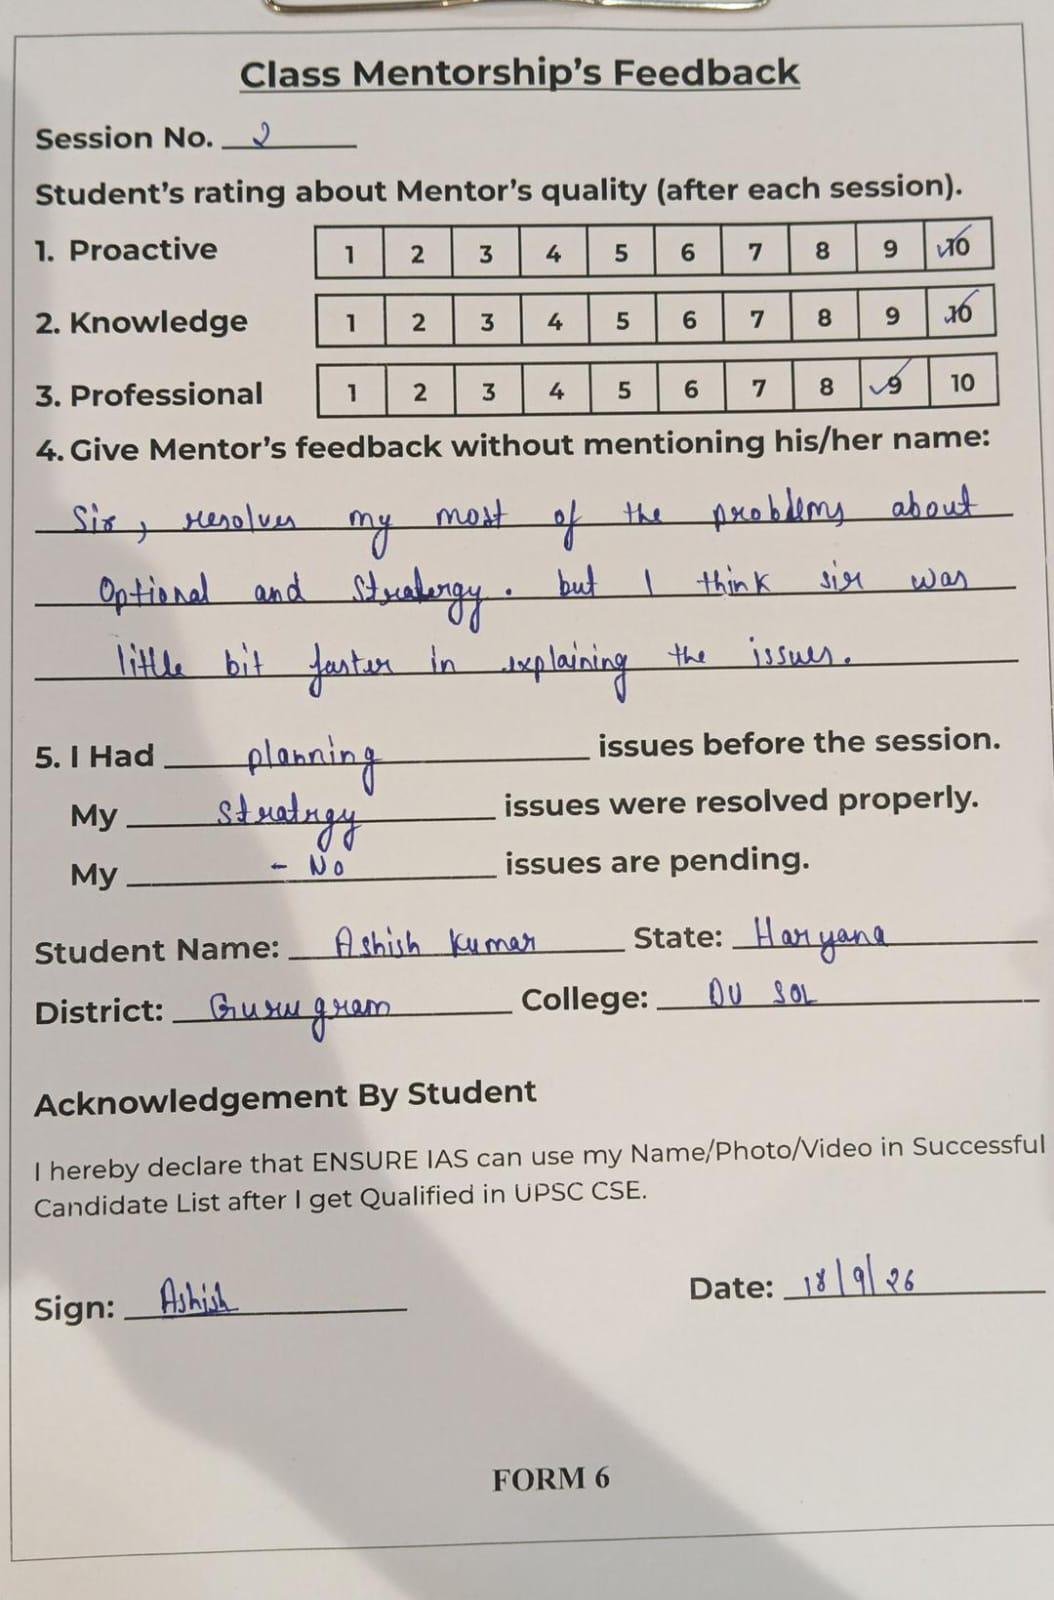 Class Mentorship's Feedback
Session No. 2
Student's rating about Mentor's quality (after each session).
1. Proactive 1 2 3 4 5 6 7 8 9 10
2. Knowledge 1 2 3 4 5 6 7 8 9 10
3. Professional 1 2 3 4 5 6 7 8 9 10
4. Give Mentor's feedback without mentioning his/her name:
Sir, resolves my most of the problems about
Optional and Stratergy. but I think sir was
little bit faster in explaining the issues.
5. I Had planning issues before the session.
My stratrgy issues were resolved properly.
My - No issues are pending.
Student Name: Ashish Kumar State: Haryana
District: Gurugram College: DU SOL
Acknowledgement By Student
I hereby declare that ENSURE IAS can use my Name/Photo/Video in Successful
Candidate List after I get Qualified in UPSC CSE.
Sign: Ashish Date: 18/9/26
FORM 6